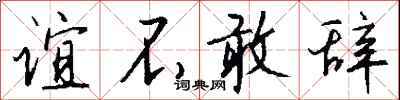 谊不敢辞
词典网